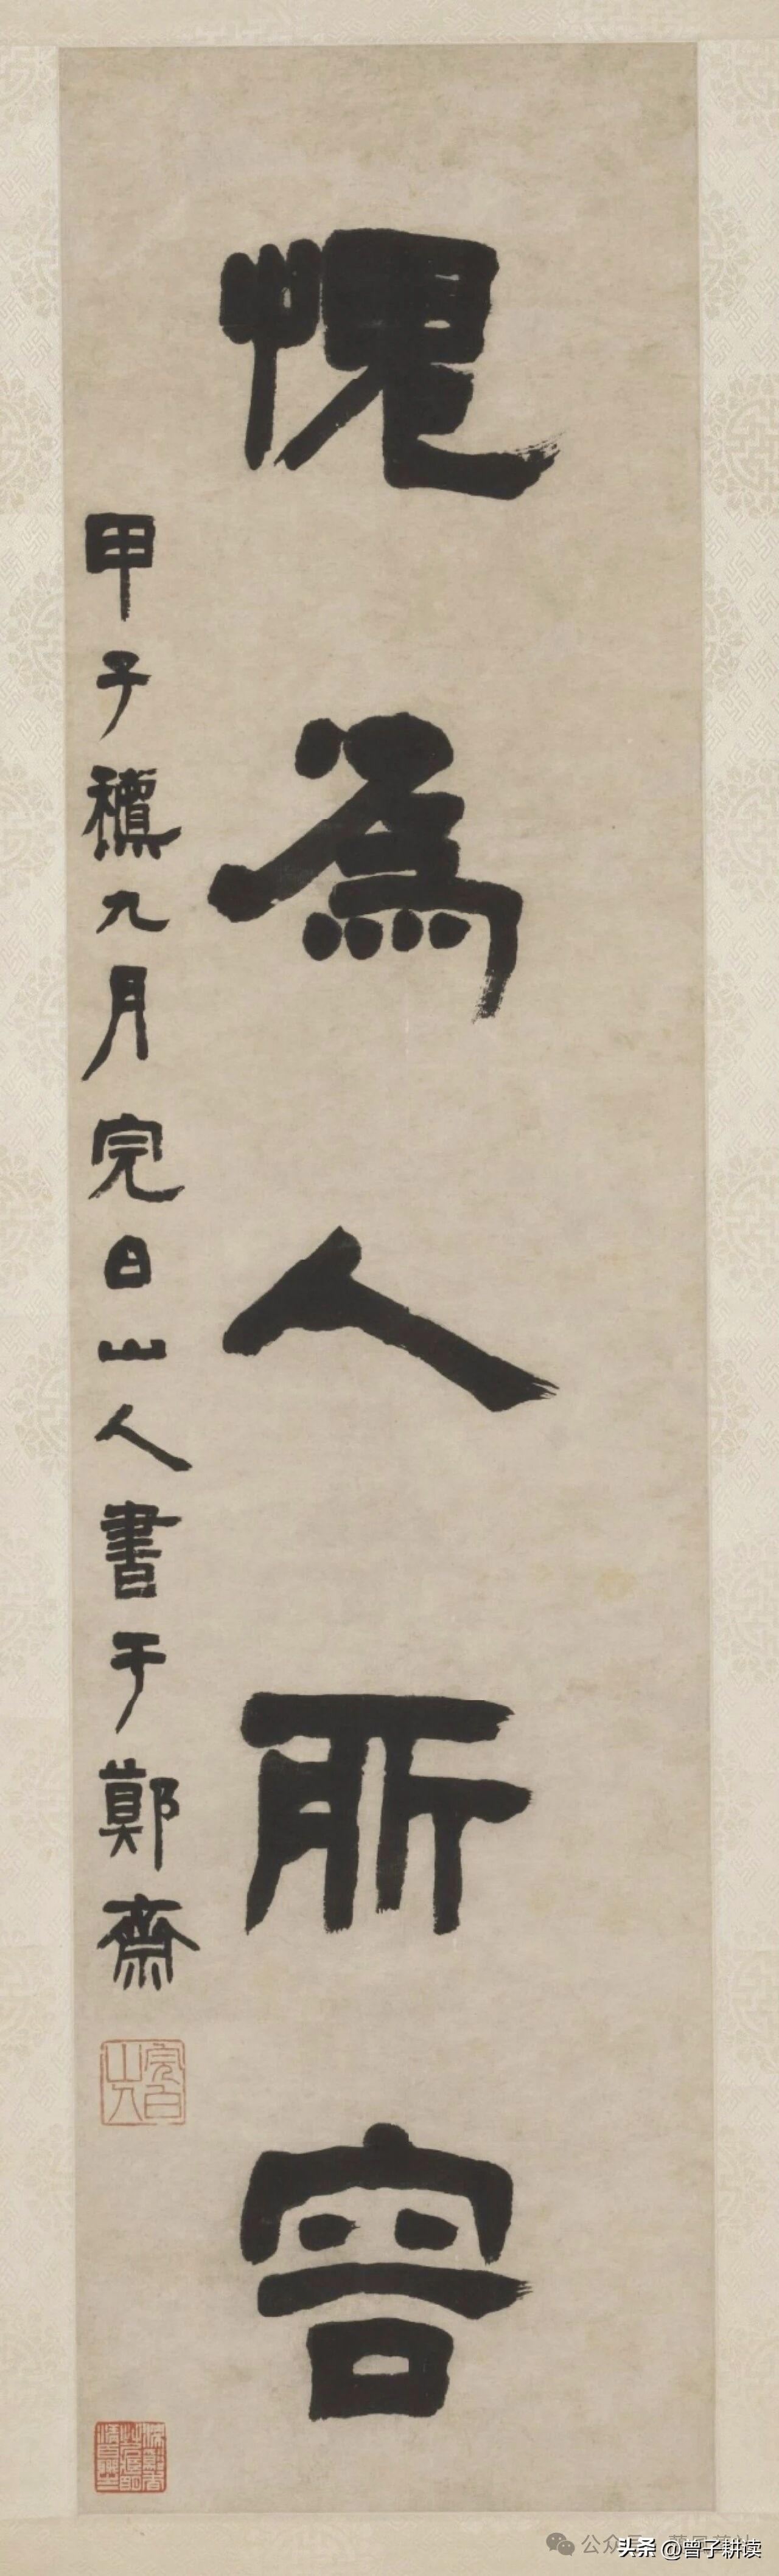 愧為人所容
甲子龝九月完白山人書于鄭齋
完白山人
公众号
头条 @曾子耕读